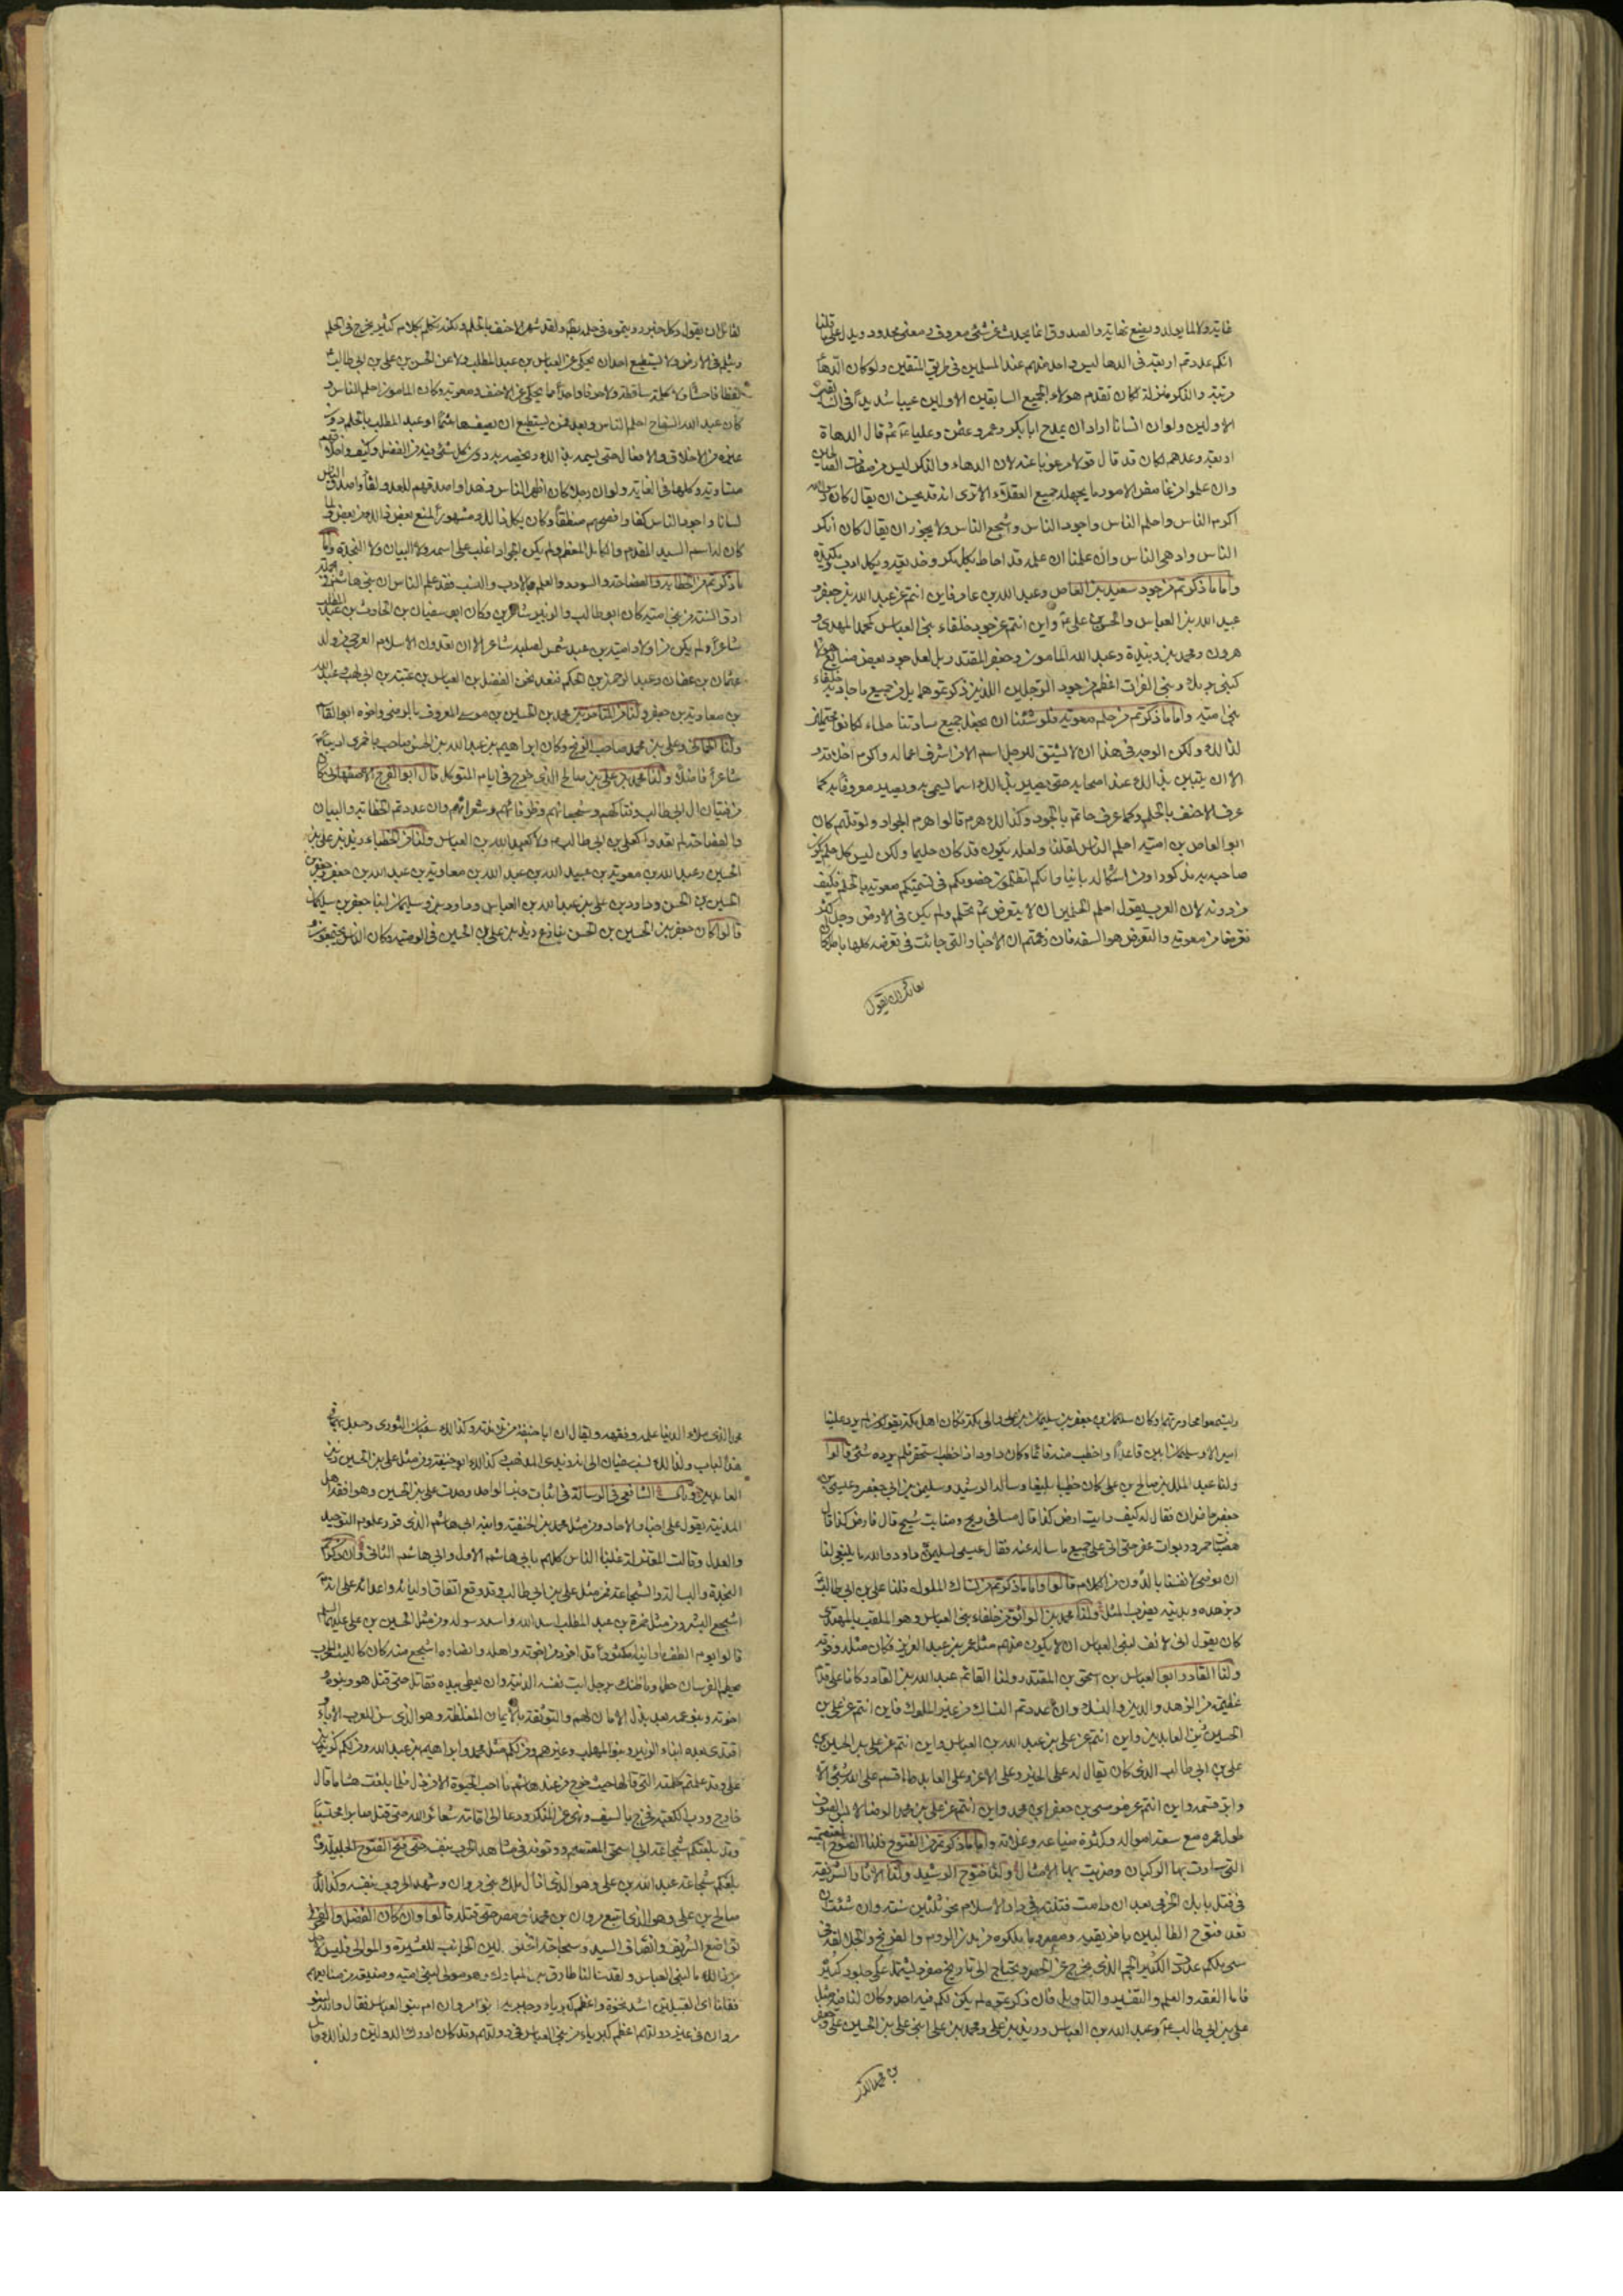 غايته ولا لما يولد ويضع نهايته والصدوق انما يحدث عن شئ معروف ومعنى محدود ويدل على ما قلنا
انكم عددتم اربعة فى الدهاء ليس واحد منهم عند المسلمين فى طريق المتقين ولو كان الدهاء
مرتبة والمكر منزلة لكان تقدم هولاء الجميع السابقين الاولين عيبا شديداً فى السابقين
الاولين ولو ان انسانا اراد ان يمدح ابابكر وعمر وعثمن وعليا ثم قال الدهاة
اربعة وعدهم لكان قد قال قولا مرغوبا عنه لان الدهاء والمكر ليس من صفات الصالحين
وان علموا من غامض الامور ما يجهله جميع العقلاء الا ترى انه قد يحسن ان يقال كان رسول الله
اكرم الناس واحلم الناس واجود الناس واشجع الناس ولا يجوز ان يقال كان امكر
الناس وادهى الناس وان علمنا ان علمه قد احاط بكل مكر وخديعة وبكل ادب ومكيدة
واما ما ذكرتم من جود سعيد بن العاص وعبد الله بن عامر فاين انتم عن عبد الله بن جعفر و
عبيد الله بن العباس والحسن بن على ع واين انتم عن جود خلفاء بنى العباس كمحمد المهدى و
هرون ومحمد بن زبيدة وعبد الله المامون وجعفر المقتدر بل لعل جود بعض صنائع هولاء
كبنى برمك وبنى الفرات اعظم من جود الرجلين اللذين ذكرتموهما بل من جميع ما جاد به خلفاء
بنى امية واما ما ذكرتم من حلم معوية فلو شئنا ان نجعل جميع ساداتنا حلماء لكانوا محتملين
لذلك ولكن الوجه فى هذا ان لا يشتق للرجل اسم الا من اشرف اعماله واكرم اخلاقه و
الا ان يتبين بذلك عند اصحابه حتى يصير بذلك اسما يسمى به ويصير معروفا به كما
عرف الاحنف بالحلم وكما عرف حاتم بالجود وكذلك هرم قالوا هرم الجواد ولو قلتم كان
ابو العاص بن امية احلم الناس لقلنا ولعله يكون قد كان حليما ولكن ليس كل حلم يكون
صاحبه به مذكورا ومن اشكاله باينا وانكم لتظلمون خصومكم فى تسميتكم معوية بالحلم فكيف
من دونه لان العرب تقول احلم الحلمين ان لا يتعرض ثم يحلم ولم يكن فى الارض رجل اكثر
تعرضا من معوية والتعرض هو السفه فان زعمتم ان الاخبار التى جائت فى تعرضه كلها باطل فان
لقائل ان يقول
لقائل ان يقول وكل خبر رويتموه فى حلمه باطل ولقد شهر الاحنف بالحلم ولكنه تكلم بكلام كثير يجرح فى الحلم
ويثلم فى العرض ولا يستطيع احد ان يحكى عن العباس بن عبد المطلب ولا عن الحسن بن على بن ابى طالب
لفظا فاحشا ولا كلمة ساقطة ولا حرفا واحداً مما يحكى عن الاحنف ومعوية وكان المامون احلم الناس و
كان عبد الله السفاح احلم الناس وبعد فمن يستطيع ان يصف هاشما او عبد المطلب بالحلم دون
غيره من الاخلاق والافعال حتى يسميه بذلك ويخصه به دون كل شئ فيه من الفضل وكيف واخلاقهم
متساوية وكلها فى الغاية ولو ان رجلا كان اظهر الناس زهدا واصدقهم للعدو لقاءً واصدق الناس
لسانا واجود الناس كفا وافصحهم منطقاً وكان بكل ذلك مشهوراً لمنع بعض ذلك من بعض و لما
كان له اسم السيد المقدم والكامل المعظم ولم يكن الجواد اغلب على اسمه ولا البيان ولا النجدة واما
ما ذكرتم من الخطابة والفصاحة والسودد والعلم بالادب والنسب فقد علم الناس ان بنى هاشم فى الجملة
ارق السنة من بنى امية كان ابو طالب والزبير شاعرين وكان ابو سفيان بن الحارث بن عبد المطلب
شاعراً ولم يكن من اولاد امية بن عبد شمس لصلبه شاعر الا ان تعدوا فى الاسلام العرجى من ولد
عثمان بن عفان وعبد الرحمن بن الحكم فنعد نحن الفضل بن العباس بن عتبة بن ابى لهب وعبد الله
بن معاوية بن جعفر ولنا من المتاخرين محمد بن الحسين بن موسى المعروف بالرضى واخوه ابو القاسم
ولنا الحمانى وعلى بن محمد صاحب الزنج وكان ابراهيم بن عبد الله بن الحسن صاحب باخمرى اديباً
شاعراً فاضلا ولنا محمد بن على بن صالح الذى خرج فى ايام المتوكل قال ابو الفرج الاصفهانى كان
من فتيان ال ابى طالب وفتاكهم وشجعانهم وظرفائهم وشعرائهم وان عددتم الخطابة والبيان
والفصاحة لم تعدوا كعلى بن ابى طالب ع ولا كعبد الله بن العباس ولنا من الخطباء زيد بن على بن
الحسين وعبد الله بن معوية بن عبد الله بن عبد الله بن معاوية بن عبد الله بن جعفر وجعفر بن
الحسين بن الحسن وداود بن على بن عبد الله بن العباس وداود بن وسليمان ابنا جعفر بن سليمان
قالوا كان جعفر بن الحسين بن الحسن ينازع زيد بن على بن الحسين فى الوصية وكان الناس يجتمعون
ليستمعوا محاورتهما وكان سليمان بن جعفر بن سليمان بن على والى مكة فكان اهل مكة يقولون لم يرد علينا
امير الا وسليمان ابين قاعداً واخطب منه قائما وكان داود اذا خطب اسحنفر فلم يرده شئ قالوا
ولنا عبد الملك بن صالح بن على كان خطيبا بليغا وساله الرشيد وسليمن بن ابى جعفر وعيسى بن
جعفر حاضران فقال له كيف رايت ارض كذا قال مسافى ريح ومنابت شيح قال فارض كذا قال
هضبات حمر وربوات عفر حتى اتى على جميع ما ساله عنه فقال عيسى لسليمن والله ما ينبغى لنا
ان نرضى لانفسنا بالدون من الكلام قالوا واما ما ذكرتم من نساك الملوك فلنا على بن ابى طالب
وبزهده وبدينه يضرب المثل ولنا محمد بن الواثق من خلفاء بنى العباس وهو الملقب بالمهتدى
كان يقول انى لانف لبنى العباس ان لا يكون منهم مثل عمر بن عبد العزيز فكان مثله وفوقه
ولنا القادر ابو العباس بن اسحق بن المقتدر ولنا القائم عبد الله بن القادر وكانا على قدم
عظيمة من الزهد والدين والنسك وان عددتم النساك من غير الملوك فاين انتم عن على بن
الحسين زين العابدين واين انتم عن على بن عبد الله بن العباس واين انتم عن على بن الحسين بن
على بن ابى طالب الذى كان يقال له على الخير وعلى الاغر وعلى العابد ما اقسم على الله بشئ الا
وابر قسمه واين انتم عن موسى بن جعفر بن محمد واين انتم عن على بن محمد الرضا لابس الصوف
طول عمره مع سعة امواله وكثرة ضياعه وغلاته واما ما ذكرتم من الفتوح فلنا الفتوح المعتصمية
التى سارت بها الركبان وضربت بها الامثال ولنا فتوح الرشيد ولنا الاثار الشريفة
فى قتل بابك الخرمى بعد ان دامت فتنته فى دار الاسلام نحو ثلثين سنة وان شئت ان
تعد فتوح الطالبين بافريقية ومصر وما ملكوه من مدن الروم والفرنج والجلالقة فى
سنى ملكهم عددت الكثير الجم الذى يخرج عن الحصر ويحتاج الى تاريخ مفرد يشتمل على جلود كثيرة
فاما الفقه والعلم والتفسير والتاويل فان ذكرتموه لم يكن لكم فيه احد وكان لنا فيه مثل
على بن ابى طالب ع وعبد الله بن العباس وزيد بن على ومحمد بن على ابنى على بن الحسين بن على وجعفر
بن محمد الذى
محمد الذى ملاء الدنيا علمه وفقهه ويقال ان ابا حنيفة من تلامذته وكذلك سفيان الثورى وحسبك بهما فى
هذا الباب ولذلك نسب سفيان الى انه زيدى المذهب وكذلك ابو حنيفة ومن مثل على بن الحسين زين
العابدين وقال الشافعى فى الرسالة فى اثبات خبر الواحد وجدت على بن الحسين وهو افقه اهل
المدينة يقول على اخبار الاحاد ومن مثل محمد بن الحنفية وابنه ابى هاشم الذى قرر علوم التوحيد
والعدل وقالت المعتزلة غلبنا الناس كلهم بابى هاشم الاول وابى هاشم الثانى وان ذكرتم
النجدة والبسالة والشجاعة فمن مثل على بن ابى طالب وقد وقع اتفاق اوليائه واعدائه على انه
اشجع البشر ومن مثل حمزة بن عبد المطلب اسد الله واسد رسوله ومن مثل الحسين بن على عليهما السلام
قالوا يوم الطف ما راينا مكثوراً قد افرد من اخوته واهله وانصاره اشجع منه كان كالليث المحرب
يحطم الفرسان حطما وما ظنك برجل ابت نفسه الدنية وان يعطى بيده فقاتل حتى قتل هو وبنوه و
اخوته وبنو عمه بعد بذل الامان لهم والتوثقة بالايمان المغلظة وهو الذى سن للعرب الاباء
واقتدى بعده ابناء الزبير وبنو المهلب وغيرهم ومن لكم مثل محمد وابراهيم بن عبد الله ومن لكم كزيد بن
على وقد علمتم كلمته التى قالها حيث خرج من عند هشام ما احب الحيوة الا من ذل فلما بلغت هشاما قال
خارج ورب الكعبة فخرج بالسيف ونهى عن المنكر ودعا الى اقامة شعائر الله حتى قتل صابرا محتسباً
وقد بلغتكم شجاعة ابى اسحق المعتصم ووقوفه فى مشاهد الحرب بنفسه حتى فتح الفتوح الجليلة و
بلغتكم شجاعة عبد الله بن على وهو الذى ازال ملك بنى مروان وشهد الحروب بنفسه وكذلك
صالح بن على وهو الذى اتبع مروان بن محمد الى مصر حتى قتله قالوا وان كان الفضل والفخر فى
تواضع الشريف وانصاف السيد وسجاحة الخلق ولين الجانب للعشيرة والموالى فليس لاحد
من ذلك ما لبنى العباس ولقد سالنا طارق بن المبارك وهو مولى لبنى امية وصنيعة من صنايعهم
فقلنا اى القبيلتين اشد نخوة واعظم كبرياء وجبرية ابنو مروان ام بنو العباس فقال والله لبنو
مروان فى غير دولتهم اعظم كبرياء من بنى العباس فى دولتهم وقد كان ادرك الدولتين ولذلك قال